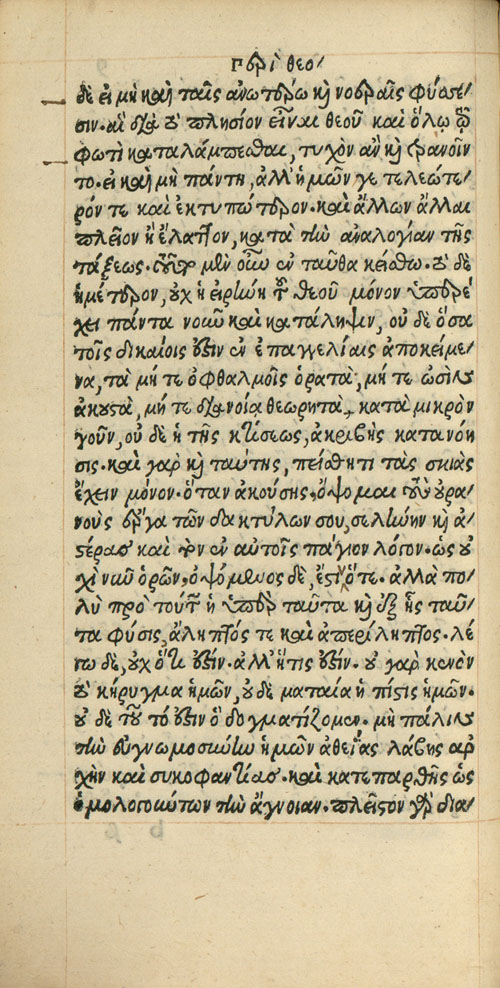 περὶ θεο/
δὲ εἰ μὴ καὶ ταῖς ἀνωτέρω κὶ νοεραῖς φύσε/
σιν. αἳ διὰ τὸ πλησίον εἶναι θεοῦ καὶ ὅλῳ τῷ
φωτὶ καταλάμπεσθαι, τυχὸν ἂν κὶ τρανοῖν
το. εἰ καὶ μὴ πάντη, ἀλλ' ἡμῶν γε τελεώτε/
ρόν τε καὶ ἐκτυπώτερον. καὶ ἄλλων ἄλλαι
πλεῖον ἢ ἔλαττον, κατὰ τὴν ἀναλογίαν τῆς
τάξεως. τοῦτο μὲν οὖν ἐνταῦθα κείσθω. τὸ δὲ
ἡμέτερον, οὐχ ἡ εἰρήνη τοῦ θεοῦ μόνον ὑπερέ
χει πάντα νοῦν καὶ κατάληψιν, οὐ δὲ ὅσα
τοῖς δικαίοις ἐστὶν ἐν ἐπαγγελίαις ἀποκείμε/
να, τὰ μή τε ὀφθαλμοῖς ὁρατὰ, μή τε ὠσὶν
ἀκουστὰ, μή τε διανοίᾳ θεωρητὰ, κατὰ μικρὸν
γοῦν, οὐ δὲ ἡ τῆς κτίσεως, ἀκριβὴς κατανόη
σις. καὶ γὰρ κὶ ταύτης, πείσθητι τὰς σκιὰς
ἔχειν μόνον. ὅταν ἀκούσῃς. ὄψομαι τοὺς οὐρα/
νοὺς ἔργα τῶν δακτύλων σου, σελήνην κὶ ἀ/
στέρας καὶ τὸν ἐν αὐτοῖς πάγιον λόγον. ὡς οὐ
χὶ νῦν ὁρῶν, ὀψόμενος δὲ, ἔστιν ὅτε. ἀλλὰ πο/
λὺ πρὸ τούτων ἡ ὑπὲρ ταῦτα κὶ ἐξ ἧς ταῦ/
τα φύσις, ἄληπτός τε καὶ ἀπερίληπτος. λέ
γω δὲ, οὐχ ὅτι ἐστὶν. ἀλλ' ἥτις ἐστὶν. οὐ γὰρ κενὸν
τὸ κήρυγμα ἡμῶν, οὐδὲ ματαία ἡ πίστις ἡμῶν.
οὐ δὲ τοῦτό ἐστιν ὃ δογματίζομεν. μὴ πάλιν
τὴν εὐγνωμοσύνην ἡμῶν ἀθεΐας λάβῃς ἀρ
χὴν καὶ συκοφαντίας. καὶ κατεπαρθῇς ὡς
ὁμολογούντων τὴν ἄγνοιαν. πλεῖστον γὰρ δια/